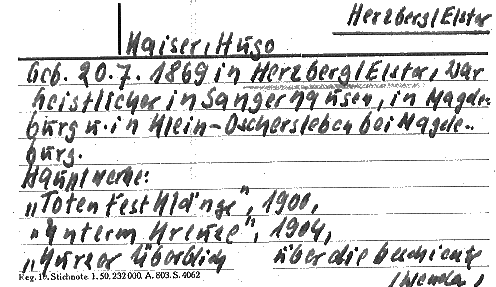 Herzberg/Elster
Kaiser, Hugo
Geb. 20.7. 1869 in Herzberg/Elster, war
Geistlicher in Sangerhausen, in Magde-
burg u. in Klein-Oschersleben bei Magde-
burg.
Hauptwerke:
„Totenfestklänge", 1900,
„Unterm Kreuze", 1904,
„Kurzer Überblick über die Geschichte
Reg. 19. Stichnote 1. 50. 232 000. A. 803. S. 4062